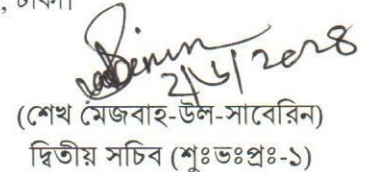 , ঢাকা।
2/6/2024
(শেখ মেজবাহ-উল-সাবেরিন)
দ্বিতীয় সচিব (শুঃভঃপ্রঃ-১)